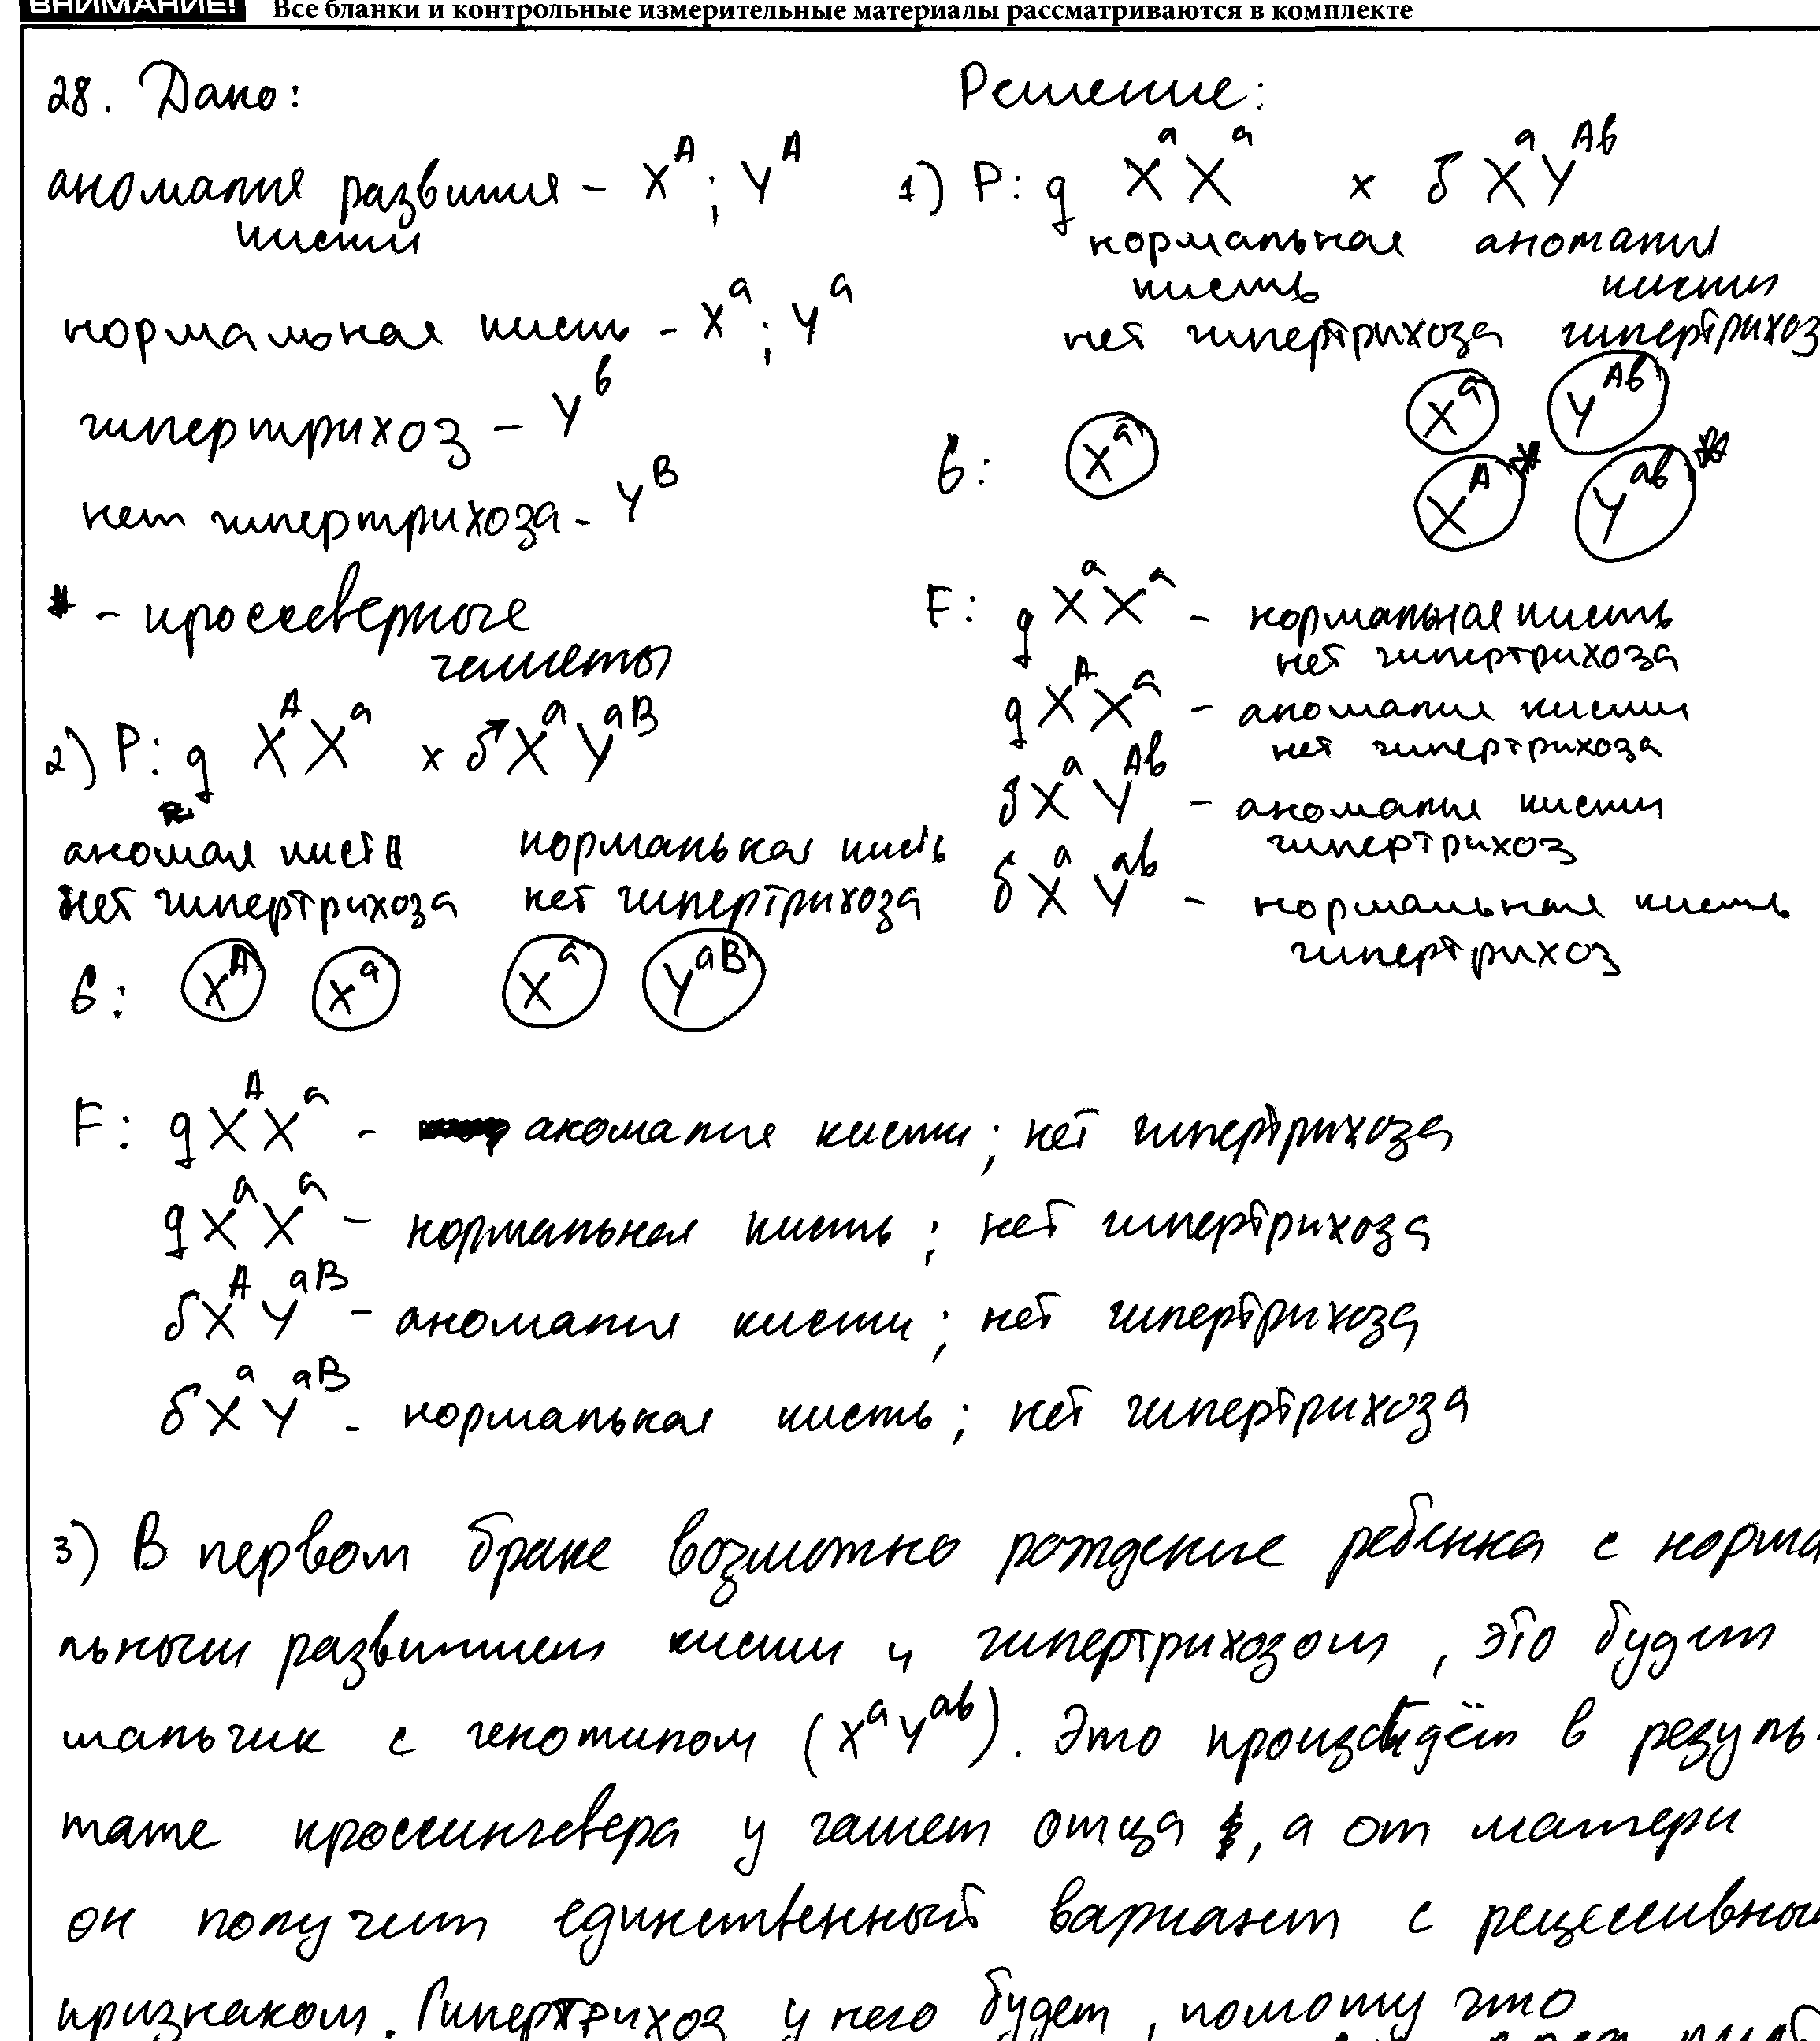 ВНИМАНИЕ! Все бланки и контрольные измерительные материалы рассматриваются в комплекте
28. Дано:
аномалия развития - X^A; Y^A
кисти
нормальная кисть - X^a; Y^a
гипертрихоз - Y^b
нет гипертрихоза - Y^B
* - кроссоверные
гаметы
Решение:
1) P: ♀ X^a X^a x ♂ X^a Y^Ab
нормальная аномалия
кисть кисти
нет гипертрихоза гипертрихоз
G: X^a X^a Y^Ab
X^A* Y^ab*
F: ♀ X^a X^a - нормальная кисть
нет гипертрихоза
♀ X^A X^a - аномалия кисти
нет гипертрихоза
♂ X^a Y^Ab - аномалия кисти
гипертрихоз
♂ X^a Y^ab - нормальная кисть
гипертрихоз
2) P: ♀ X^A X^a x ♂ X^a Y^aB
аномал кисти нормальная кисть
нет гипертрихоза нет гипертрихоза
G: X^A X^a X^a Y^aB
F: ♀ X^A X^a - аномалия кисти; нет гипертрихоза
♀ X^a X^a - нормальная кисть; нет гипертрихоза
♂ X^A Y^aB - аномалия кисти; нет гипертрихоза
♂ X^a Y^aB - нормальная кисть; нет гипертрихоза
3) В первом браке возможно рождение ребёнка с норма
льным развитием кисти и гипертрихозом, это будет
мальчик с генотипом (X^a Y^ab). Это произойдёт в резуль-
тате кроссинговера у гамет отца, а от матери
он получит единственный вариант с рецессивным
признаком. Гипертрихоз у него будет, потому что